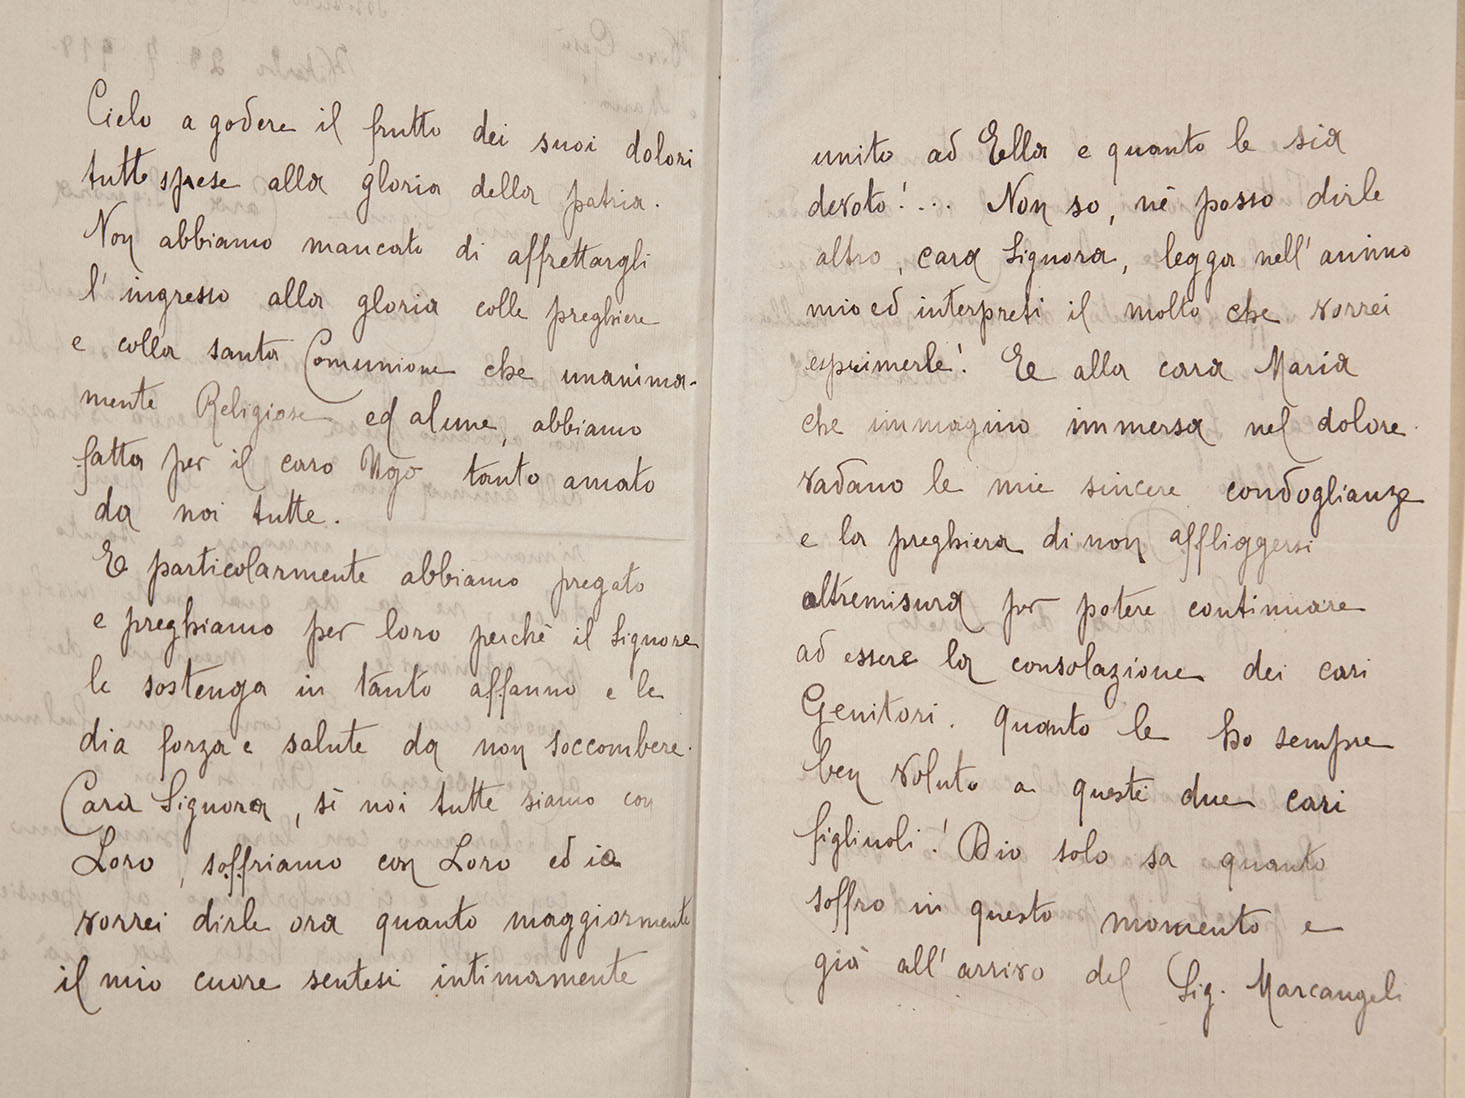 Cielo a godere il frutto dei suoi dolori
tutte spese alla gloria della patria.
Non abbiamo mancato di affrettargli
l'ingresso alla gloria colle preghiere
e colla santa Comunione che unanima-
mente Religiose ed alune, abbiamo
fatta per il caro Ugo tanto amato
da noi tutte.
E particolarmente abbiamo pregato
e preghiamo per loro perchè il Signore
le sostenga in tanto affanno e le
dia forza e salute da non soccombere.
Cara Signora, sì noi tutte siamo con
Loro, soffriamo con Loro ed io
vorrei dirle ora quanto maggiormente
il mio cuore sentesi intimamente
unito ad Ella e quanto le sia
devoto!... Non so, nè posso dirle
altro, cara Signora, legga nell'animo
mio ed interpreti il molto che vorrei
esprimerle! E alla cara Maria
che immagino immersa nel dolore
vadano le mie sincere condoglianze
e la preghiera di non affliggersi
altremisura per potere continuare
ad essere la consolazione dei cari
Genitori. Quanto le ho sempre
ben voluto a questi due cari
figliuoli! Dio solo sa quanto
soffro in questo momento e
già all'arrivo del Sig. Marcangeli